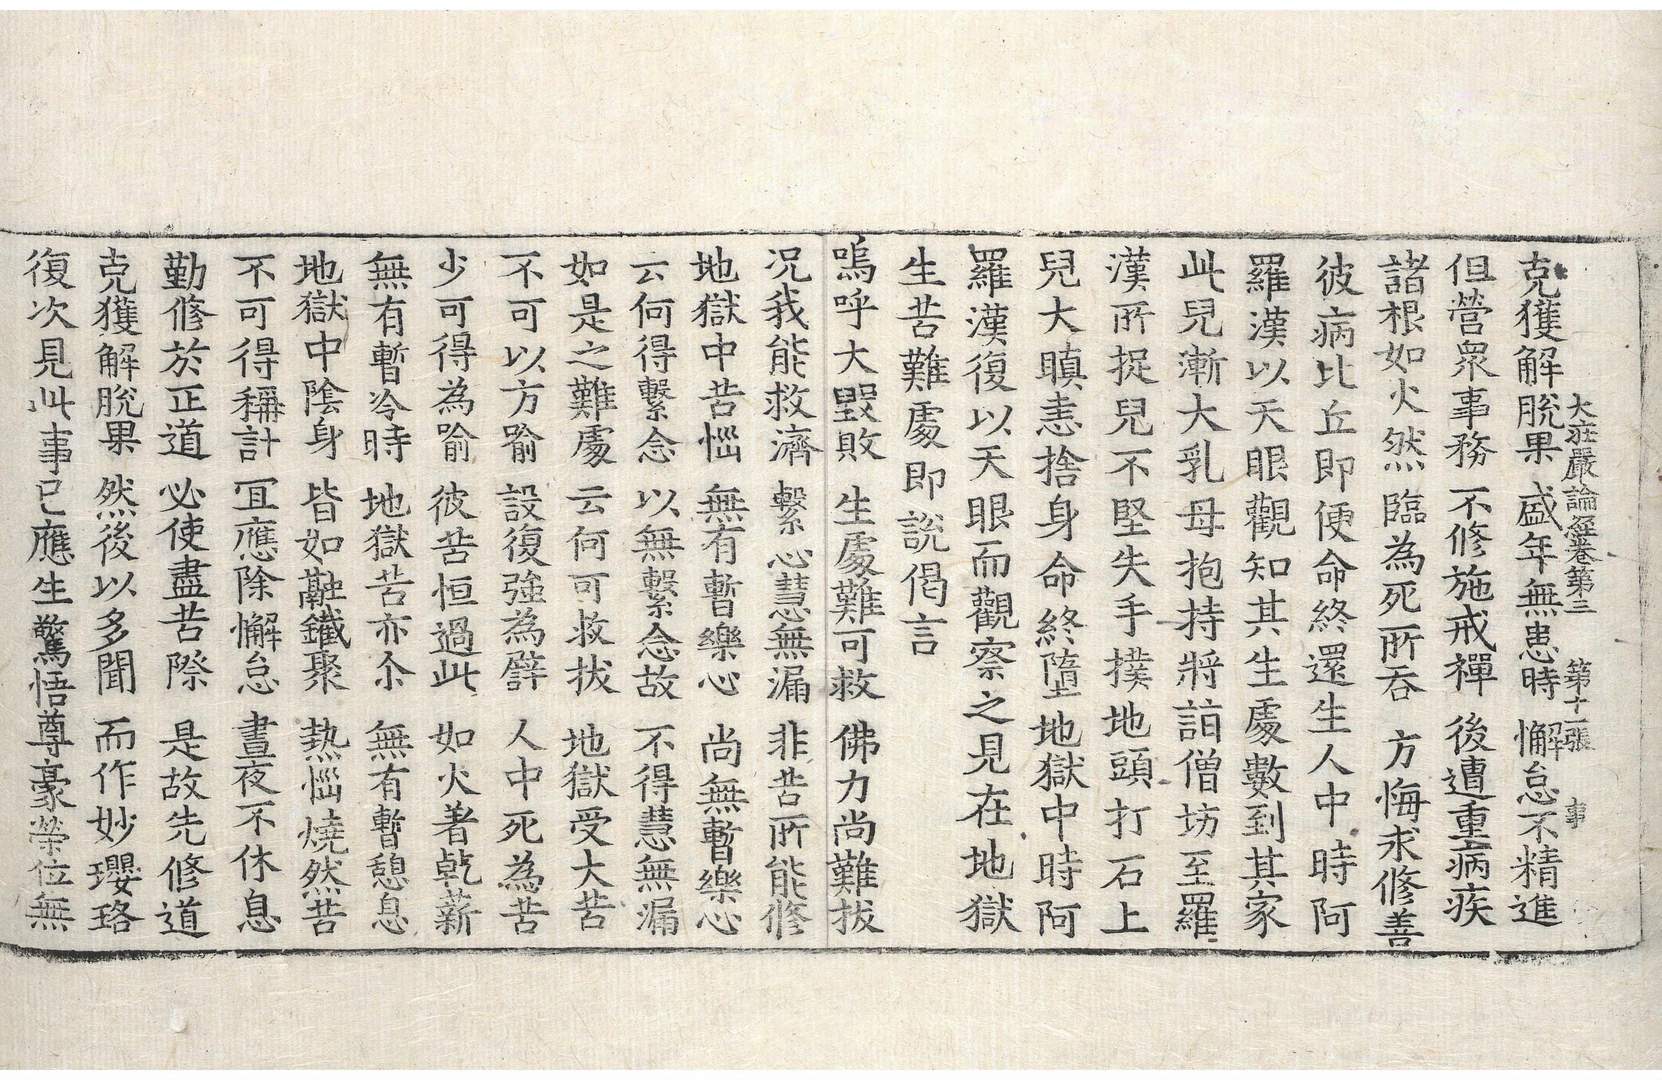 大莊嚴論經卷第三 第十一張 事
克獲解脫果 盛年無患時 懈怠不精進
但營衆事務 不修施戒禪 後遭重病疾
諸根如火然 臨為死所吞 方悔求修善
彼病比丘即便命終還生人中時阿
羅漢以天眼觀知其生處數到其家
此兒漸大乳母抱持將詣僧坊至羅
漢所捉兒不堅失手撲地頭打石上
兒大瞋恚捨身命終墮地獄中時阿
羅漢復以天眼而觀察之見在地獄
生苦難處即說偈言
嗚呼大毀敗 生處難可救 佛力尚難拔
况我能救濟 繫心慧無漏 非苦所能修
地獄中苦惱 無有暫樂心 尚無暫樂心
云何得繫念 以無繫念故 不得慧無漏
如是之難處 云何可救拔 地獄受大苦
不可以方喻 設復強為譬 人中死為苦
少可得為喻 彼苦恒過此 如火著乾薪
無有暫冷時 地獄苦亦尒 無有暫憩息
地獄中陰身 皆如融鐵聚 熱惱燒然苦
不可得稱計 冝應除懈怠 晝夜不休息
勤修於正道 必使盡苦際 是故先修道
克獲解脫果 然後以多聞 而作妙瓔珞
復次見此事已應生驚悟尊豪榮位無